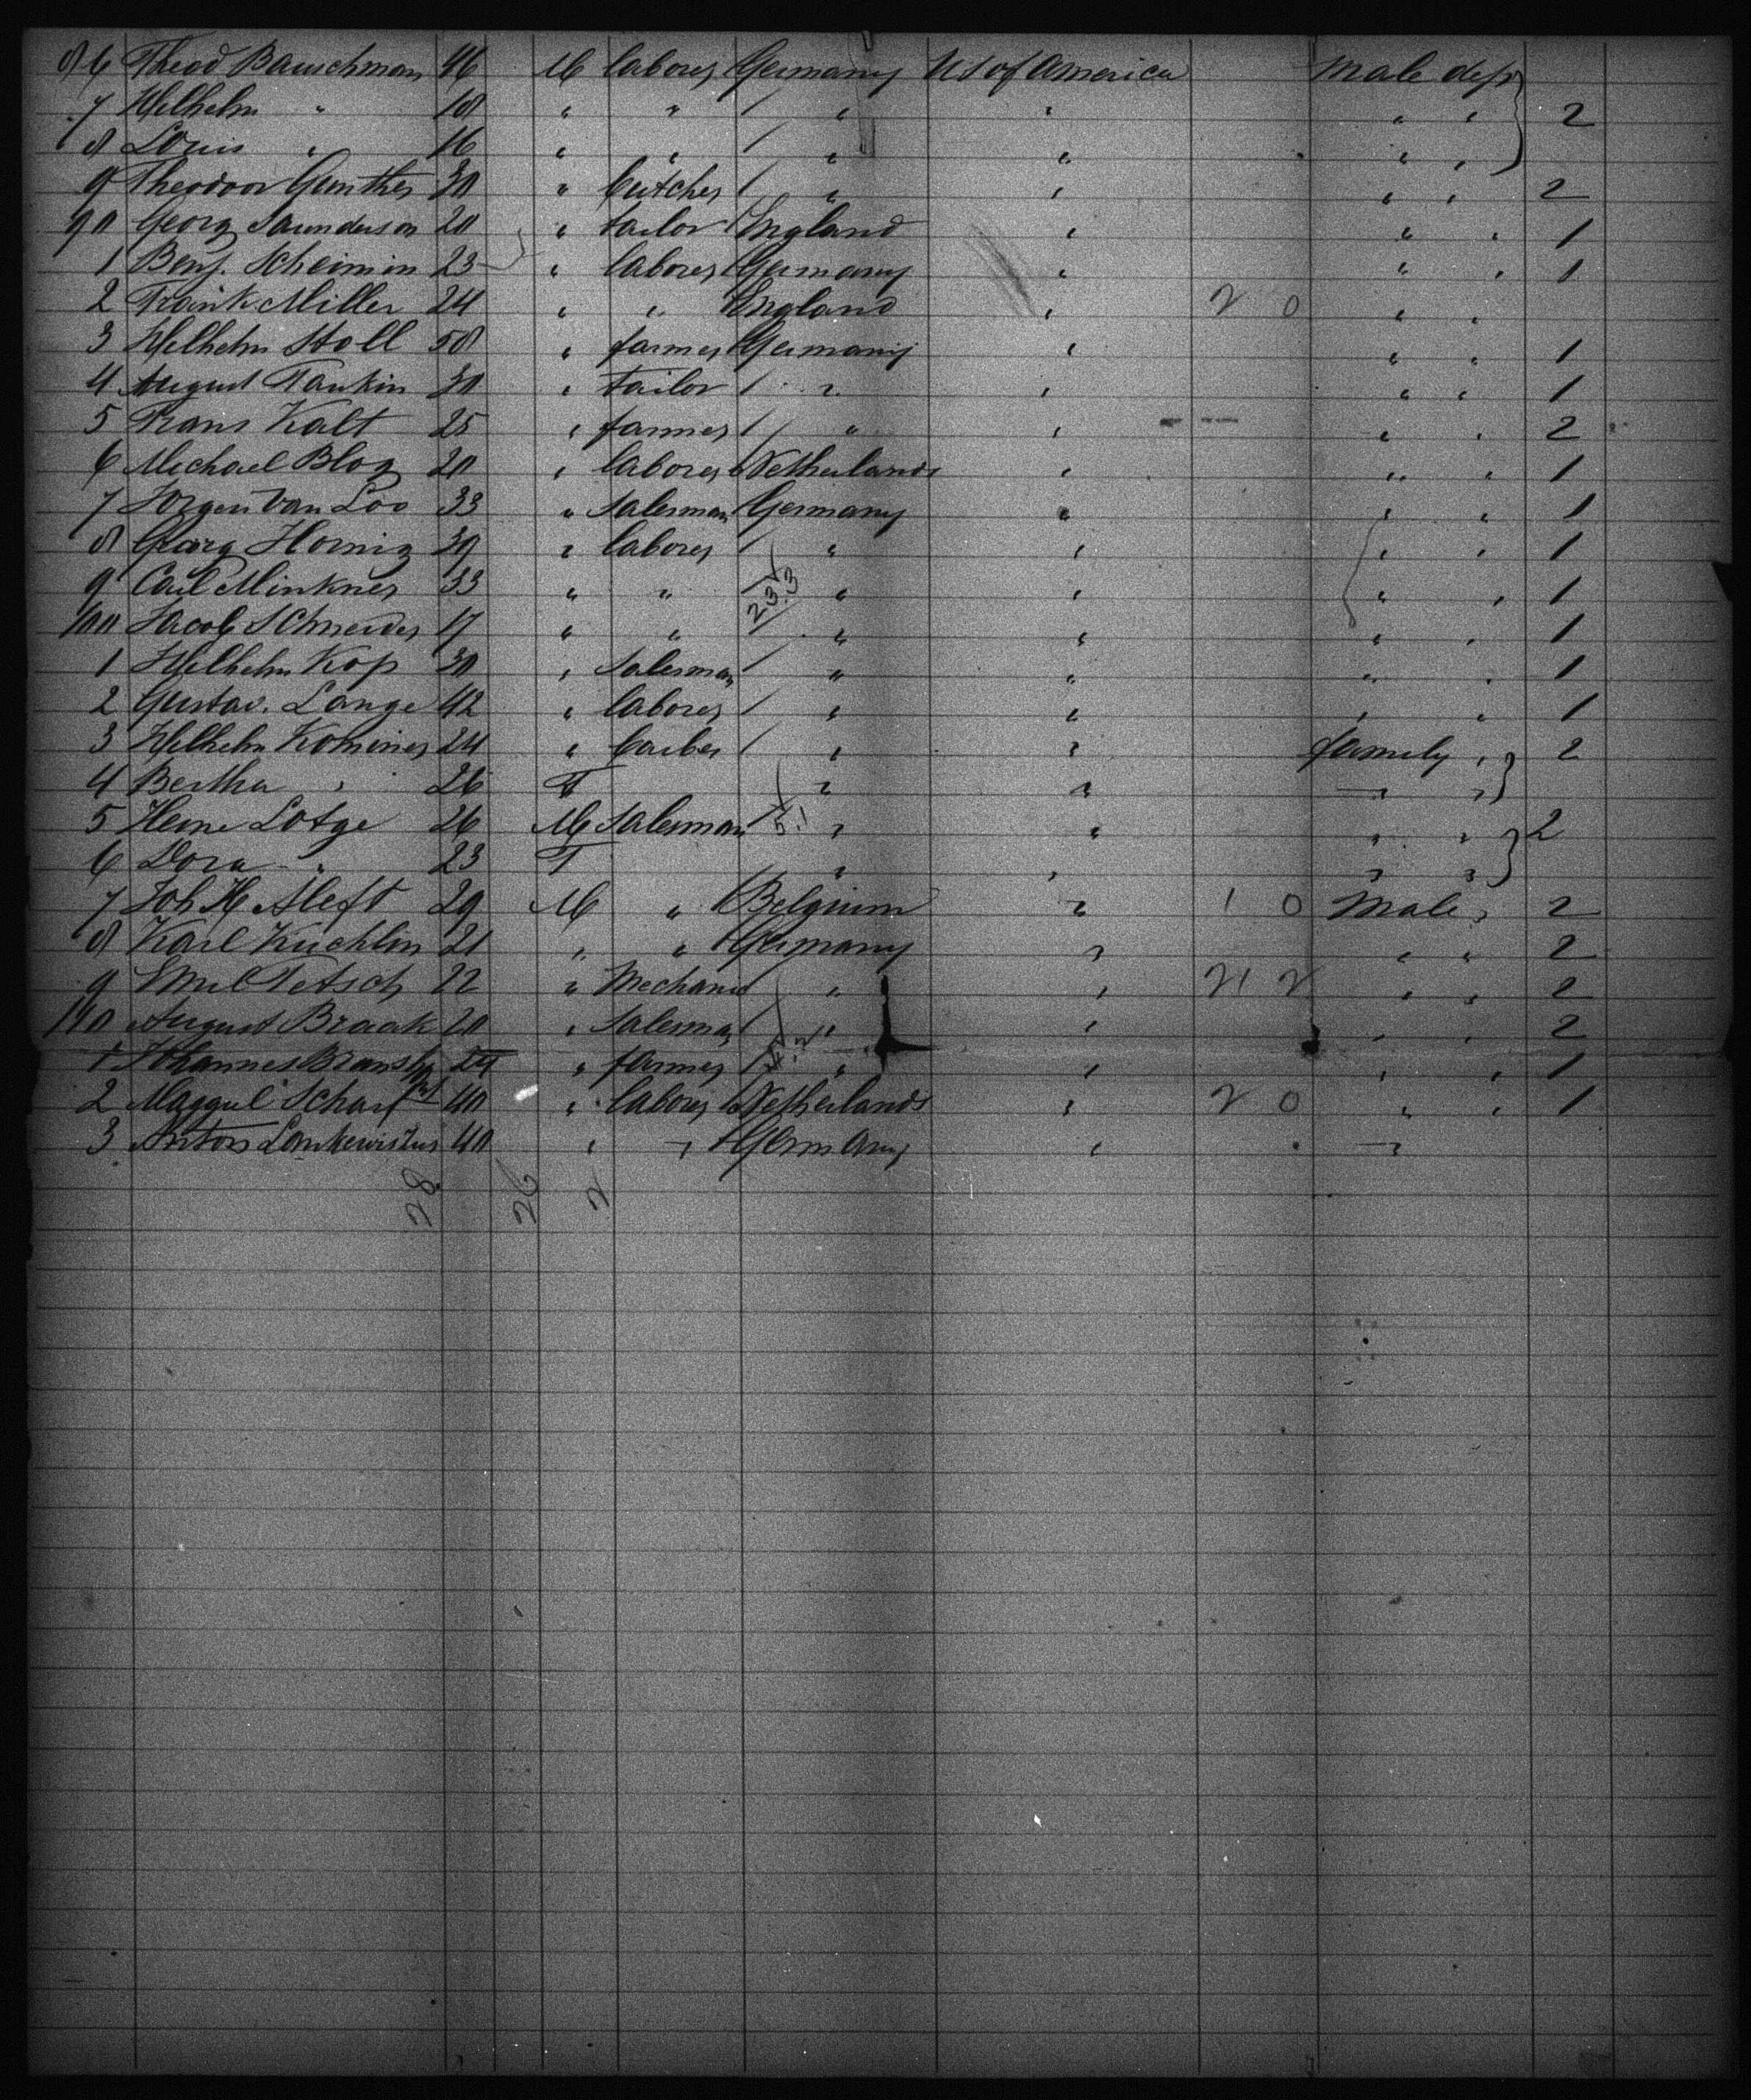 86 Theod Bauschman 46 M labores Germany US of America Male dep
7 Wilhelm " 18 " " / " " " " 2
8 Louis " 16 " " / " " " "
9 Theodoor Gunther 30 " butcher / " " " " 2
90 Georg Saunderson 20 " tailor England " " " 1
1 Benj. Scheimin 23 " labores Germany " " " 1
2 Frank Miller 24 " " England " 2 0 " "
3 Wilhelm Stoll 58 " farmer Germany " " " 1
4 August Rankin 30 " tailor / " " " " 1
5 Frans Kalt 25 " farmer / " " " " 2
6 Michael Blog 20 " labores Netherlands " " " 1
7 Jorgen Van Loo 33 " Salesman Germany " " " 1
8 Georg Hornig 39 " labores / " " " " 1
9 Carl Minkner 33 " " / " " " " 1
23.3
100 Jacob Schneider 17 " " / " " " " 1
1 Wilhelm Kop 30 " Salesman / " " " " 1
2 Gustav. Lange 42 " labores / " " " " 1
3 Wilhelm Kominer 24 " barber / " " family " 2
4 Bertha " 26 F " " " "
5 Heine Lotge 26 M Salesman / 5.1 " " " " 2
6 Dora " 23 F " " " "
7 Joh H Aleft 29 M " Belgium " 1 0 Male " 2
8 Karl Kuchlin 21 " " Germany " " " 2
9 Emil Tetsch 22 " Mechanic / " " 21 2 " " 2
110 August Braak 20 " Salesman / " " " " 2
1 Johannes 24 " farmer / " " " " 1
2 Scharf 40 " labores Netherlands " 2 0 " " 1
3 Anton 40 " " Germany " "
28 26 2